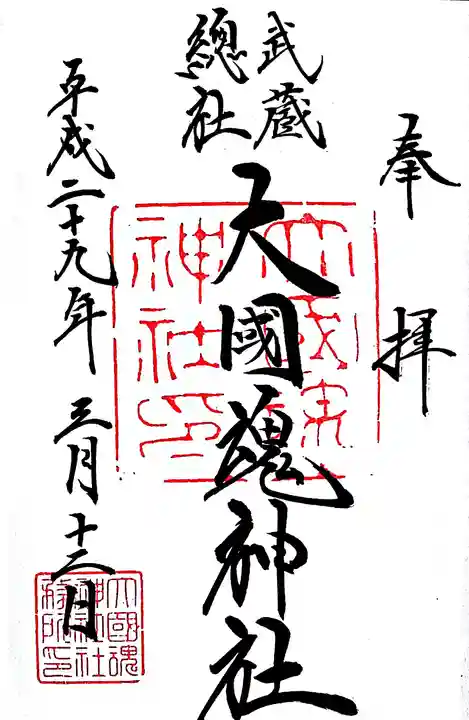 奉拝
武蔵
總社
大國魂神社
平成二十九年三月十二日
大國魂
神社印
大國魂
神社社
務所印